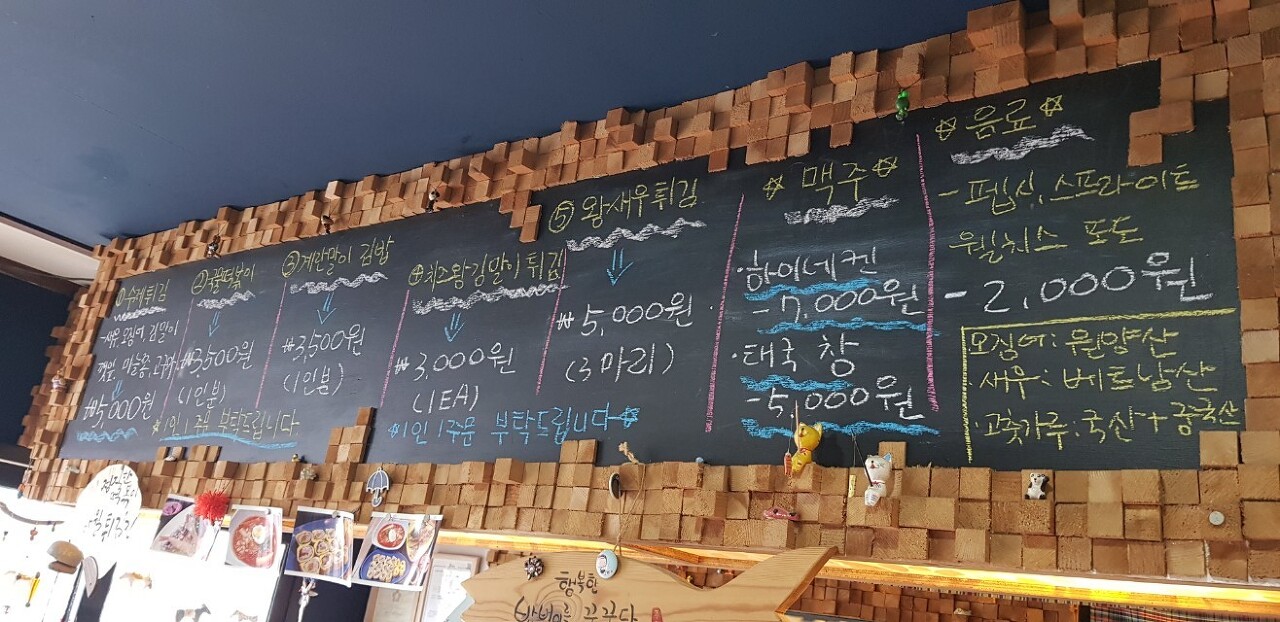 ①수제튀김
-새우, 오징어, 김말이,
깻잎,
₩5,000원
②국물떡볶이
₩3,500원
(1인분)
③계란말이 김밥
₩3,500원
(1인분)
*1인 1주문 부탁드립니다
④치즈왕김말이튀김
₩3,000원
(1EA)
*1인 1주문 부탁드립니다
⑤왕새우튀김
₩5,000원
(3마리)
☆ 맥주 ☆
·하이네켄
-7,000원
·태국 창
-5,000원
☆ 음료 ☆
-펩시, 스프라이트
웰치스 포도
-2,000원
오징어: 원양산
·새우: 베트남산
·고춧가루: 국산+중국산
행복한
꾸꾸다